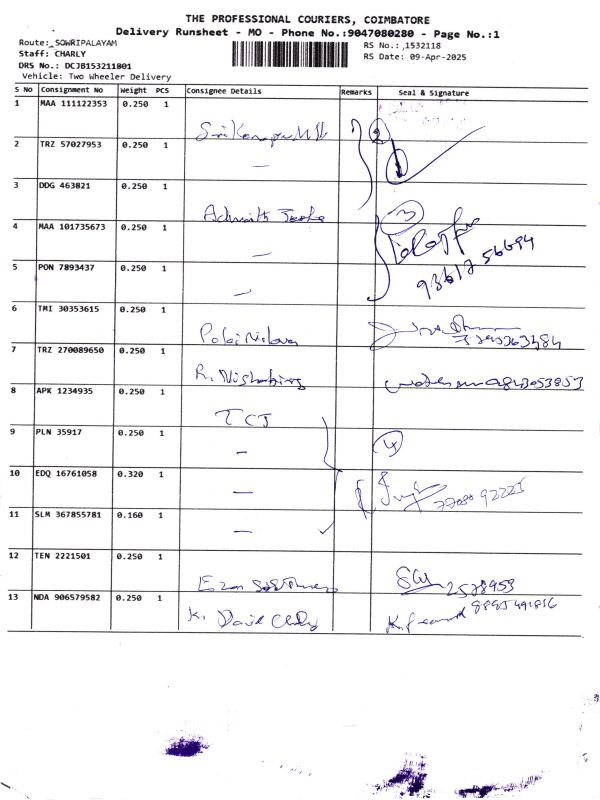 THE PROFESSIONAL COURIERS, COIMBATORE
Delivery Runsheet - MO - Phone No.:9047080280 - Page No.:1
Route: SOWRIPALAYAM
Staff: CHARLY
DRS No.: DCJB153211801
Vehicle: Two Wheeler Delivery
RS No.: 1532118
RS Date: 09-Apr-2025
S No Consignment No Weight PCS Consignee Details Remarks Seal & Signature
1 MAA 111122353 0.250 1
2 TRZ 57027953 0.250 1 —
3 DDG 463821 0.250 1
3
4 MAA 101735673 0.250 1 —
5 PON 7893437 0.250 1 —
6 TMI 30353615 0.250 1
7 TRZ 270089650 0.250 1
8 APK 1234935 0.250 1
9 PLN 35917 0.250 1 — 4
10 EDQ 16761058 0.320 1 —
11 SLM 367855781 0.160 1 —
12 TEN 2221501 0.250 1
13 NDA 906579582 0.250 1 K. David